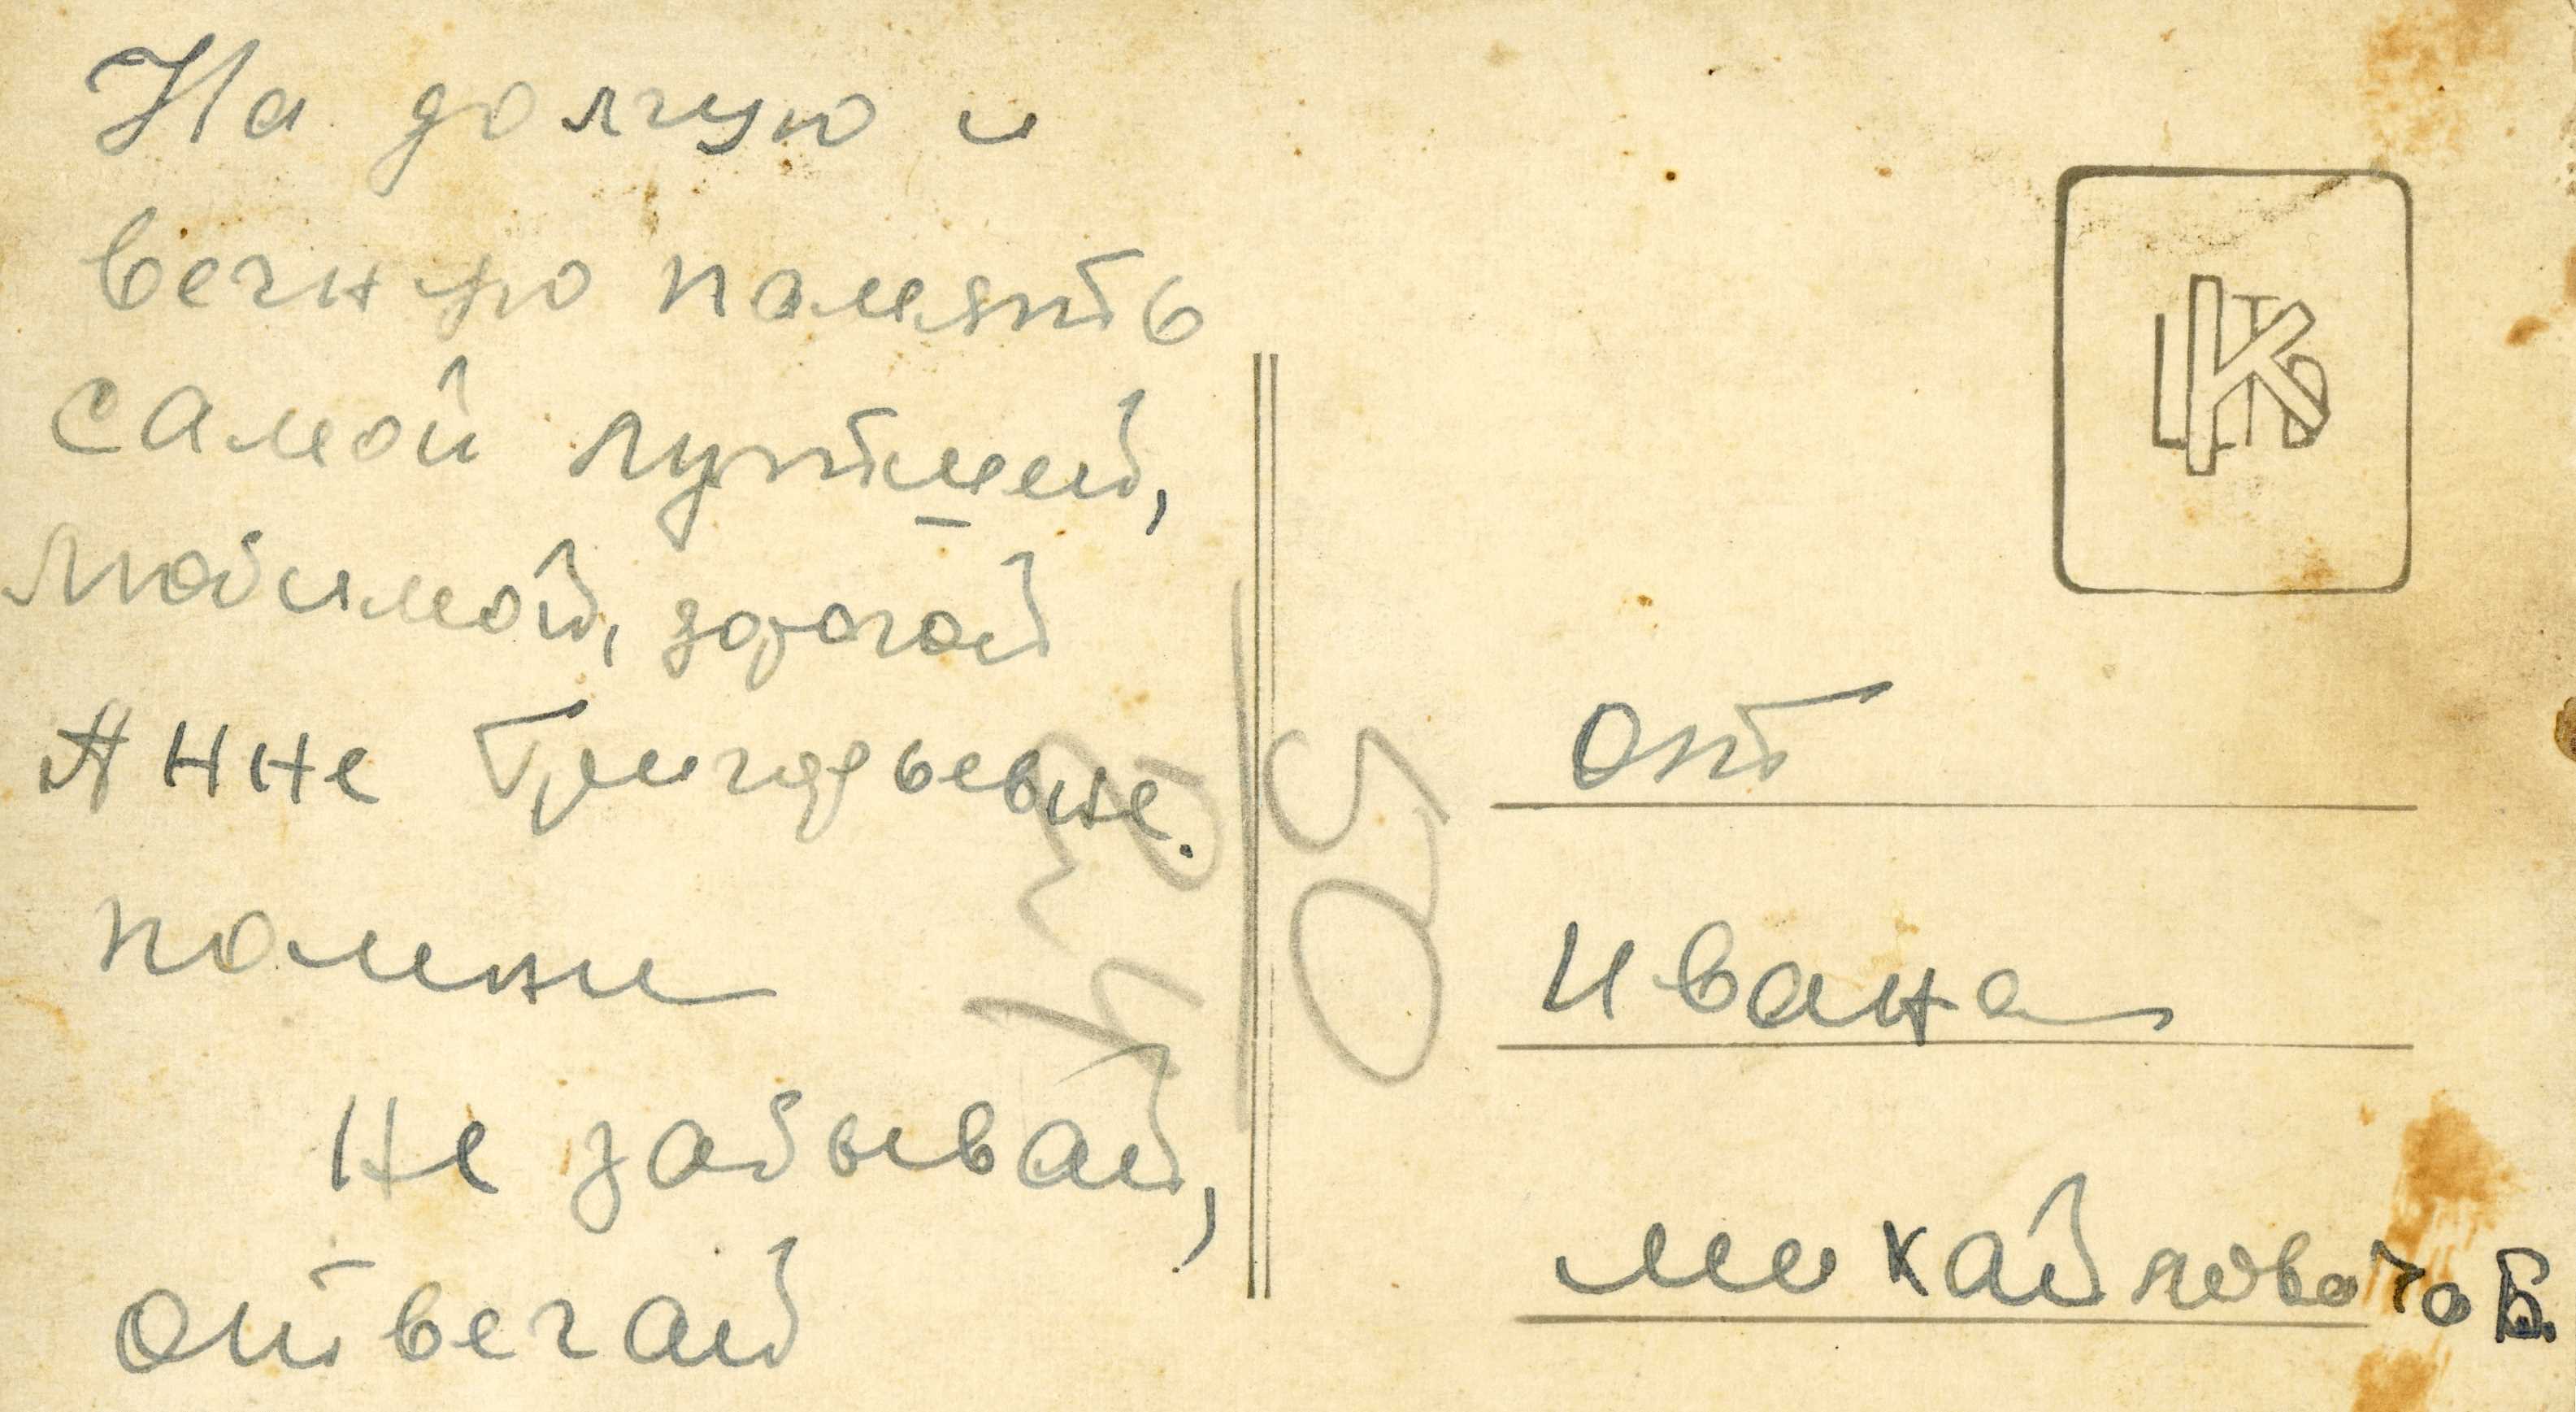 На долгую и
вечную помять
самой лутшей,
любимой, дорогой
Анне Григорьевне.
помни
не забывай,
отвечай
от
Ивана
михайлового Б.